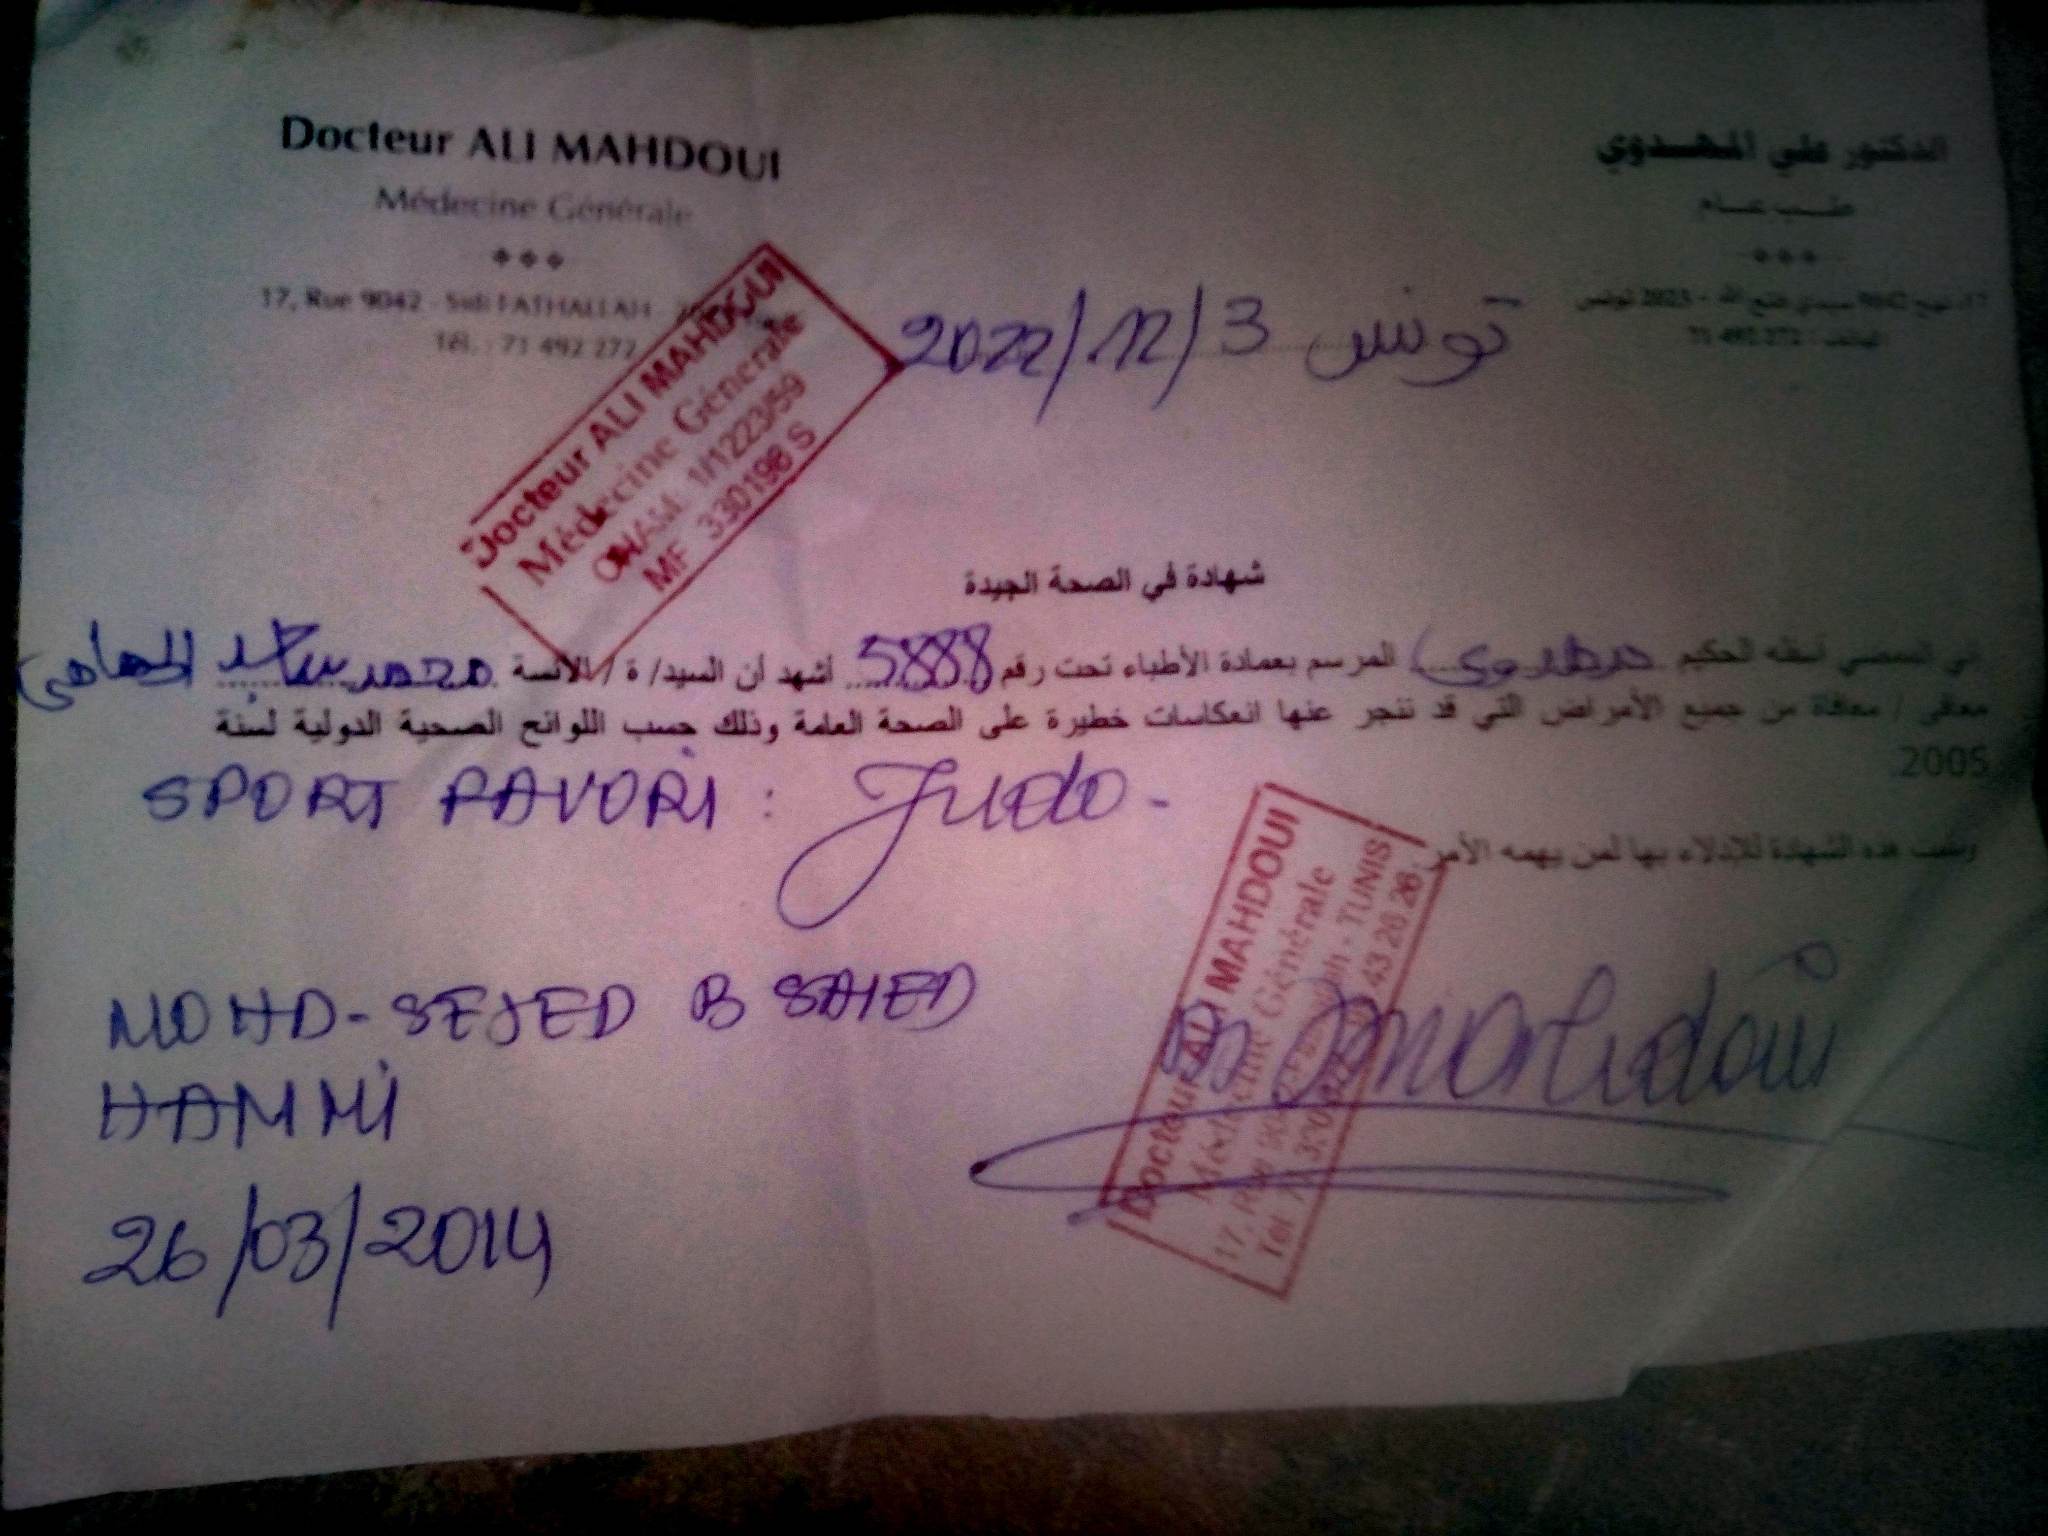 Docteur ALI MAHDOUI
Médecine Générale
17, Rue 9042 - Sidi FATHALLAH
Tél. : 71 492 272
الدكتور علي المهدوي
طب عام
17، نهج 9042 سيدي فتح الله - 2023 تونس
الهاتف : 71 492 272
تونس 3/12/2022
Docteur ALI MAHDOUI
Médecine Générale
CNAM: 1/1223/59
MF 330198 S
شهادة في الصحة الجيدة
إني الممضي أسفله الحكيم مهدوي المرسم بعمادة الأطباء تحت رقم 5888 أشهد أن السيد/ ة / الآنسة محمد ساجد الهمامي
معافى / معافاة من جميع الأمراض التي قد تنجر عنها انعكاسات خطيرة على الصحة العامة وذلك حسب اللوائح الصحية الدولية لسنة
2005.
SPORT FAVORI : Judo -
وسلمت هذه الشهادة للإدلاء بها لمن يهمه الأمر
MOHD-SEJED B SAIED
HAMMI
26/03/2014
Docteur ALI MAHDOUI
Médecine Générale
17, Rue 9042 - TUNIS
Tél 43 26 26
Dr Mahdoui